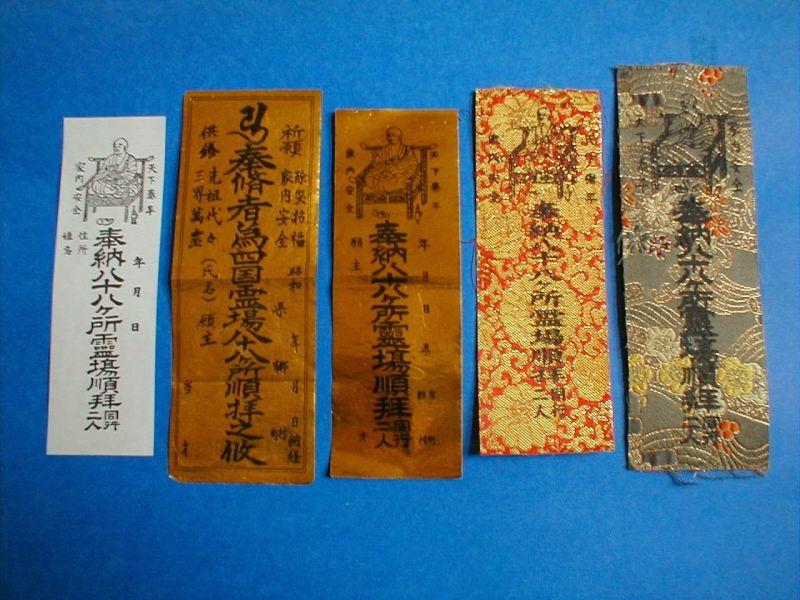 天下泰平
年 月 日
奉納八十八ヶ所靈場順拝
同行二人
家内安全
住所
姓名
祈願
除災招福
家内安全
昭和 年 月 日 納経
県 郷
奉脩者為四国霊場八十八所順拝之攸
供養
先祖代々
三界萬霊
(氏名) 願主
当 才
天下泰平
年 月 日 県
市 町
郡 村
奉納八十八ヶ所靈場順拝
同行二人
家内安全
願主
才
奉納八十八ヶ所靈場順拝
同行二人
家内安全
奉納八十八ヶ所靈場順拝